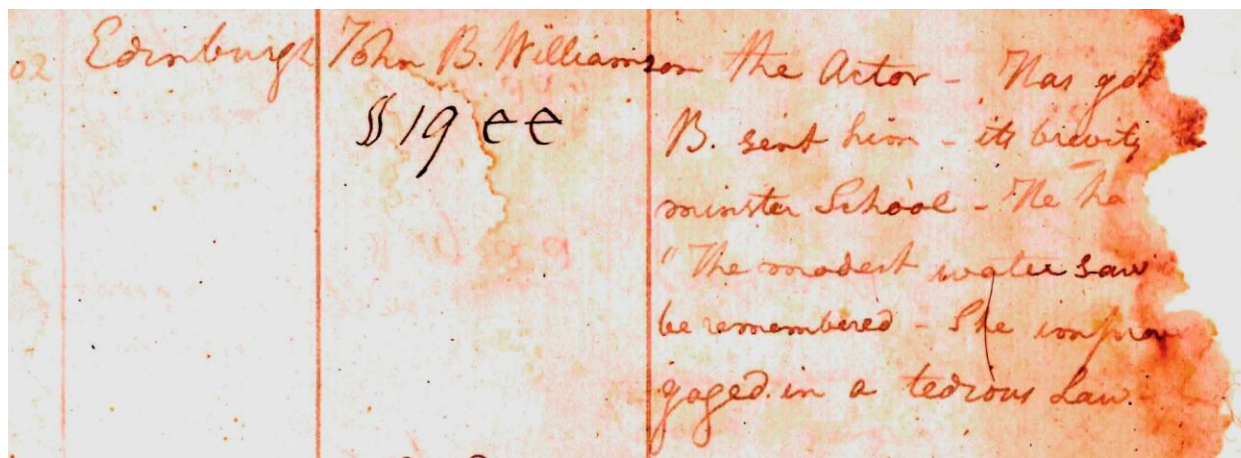 02 Edinburgh John B. Williamson the Actor - Has got
$ 19 ee B. sent him - its brevity
minster School - He ha
"The modest water saw
be remembered - She improv
gaged in a tedious Law